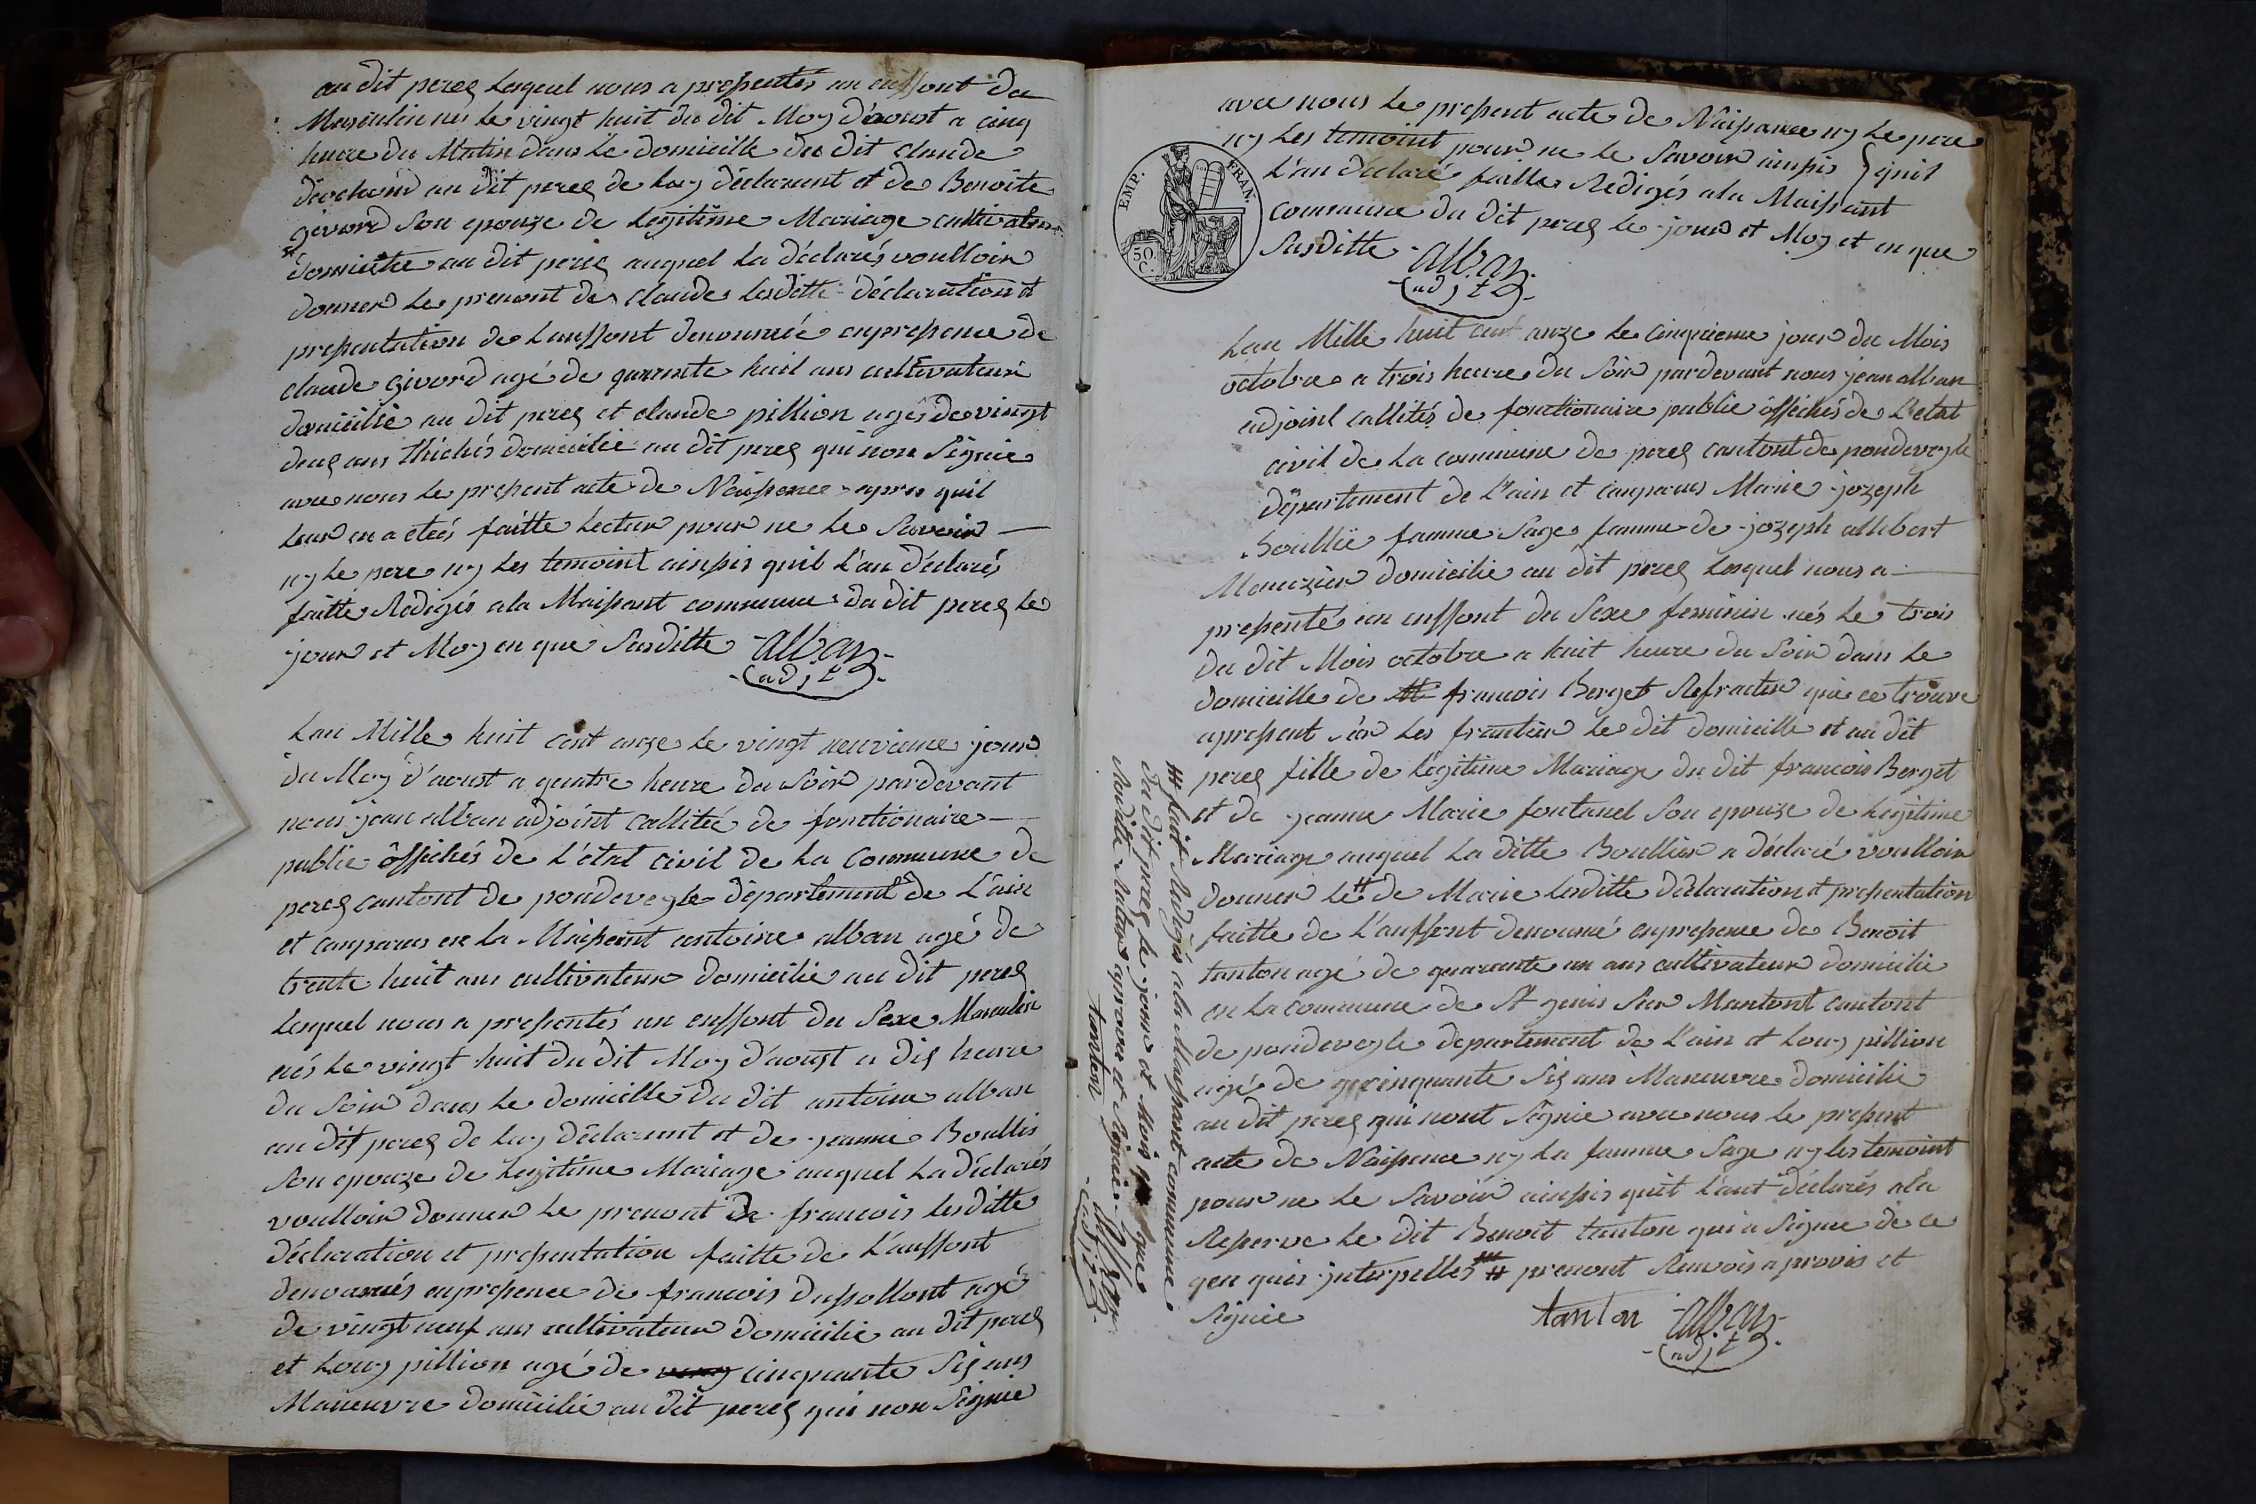 au dit perex Lequel nous a presentés un enffont du
Masculin nés le vingt huit du dit Moy d'aoust a cinq
heure du Matin dans le domicille du dit claude
au dit perex de luy déclarant et de Benoite
givord Son epouze de Legitime Mariage cultivateur
domicilie au dit perex auquel La déclarés voulloir
donner Le prenont de claude Lesditte déclaration et
presentation de Lanffont denommé enpresence de
claude givord agé de quarante huit ans cultivateur
domicilie au dit perex et claude pillion agés de vingt
deux ans domicilie au dit perex qui non Signie
avec nous Le present acte de Naissence apres quil
Leur en a eteés faitte Lecteur pour ne Le Savoir
ny Le pere ny Les temoint ainssis quil L'an déclarés
faitte Redigés ala Maissont commune du dit perex Le
jour et Moy en que Susditte alban
adjt
Lan Mille huit cent onze Le vingt neuvieme jour
du Moy d'aoust a quatre heure du Soir pardevant
nous jean alban adjoint callitée de fonctionaire
public öffichés de L'état civil de La Commune de
perex cantont de pondeveyle département de L'ain
et conparus en La Maissont antoine alban agé de
trente huit ans cultivateur domicilie au dit perex
Lequel nous a presentés un enffont du Sexe Masculin
nés Le vingt huit du dit Moy d'aoust a dix heure
du Soir dans Le domicille du dit antoine alban
au dit perex de luy déclarant et de jeanne Boullis
Son epouze de Legitime Mariage auquel La déclarés
voulloir donner Le prenont de francois Lesditte
déclaration et presentation faitte de L'anffont
denommés enpresence de francois dussollont agé
de vingt neuf ans cultivateur domicilie au dit perex
et Louy pillion agé de cinquante Six ans
Maneuvre domicilie au dit perex qui non Signie
avec nous Le present acte de Naissance ny Le pere
ny Les temoint pour ne Le Savoir ainssis quil
L'an déclaré faitte Redigés ala Maissont
commune du dit perex Le jour et Moy et en que
Susditte alban
adjt
EMP. FRAN.
50 C.
Lan Mille huit cent onze Le cinquieme jour du Mois
octobre a trois heure du Soir pardevant nous jean alban
adjoint callités de fonctionaire public öffichés de L'etat
civil de La commune de perex cantont de pondeveyle
département de L'ain et conparus Marie jozeph
Boullie famme Sage famme de jozeph allibert
Menuzier domicilie au dit perex Lequel nous a
presentés un enffont du Sexe feminin nés Le trois
du dit Mois octobre a huit heure du Soir dans Le
domicille de francois Berget Refracter qui ce trouve
apressent sur Les frontier Le dit domicille et au dit
perex fille de Légitime Mariage du dit francois Berget
et de jeanne Marie fontanel Son epouze de Legitime
Mariage auquel La ditte Boullier a déclaré voulloir
donner Le # de Marie Lesditte déclaration et presentation
faitte de L'anffont denommé enpresence de Benoit
tanton agé de quarante un ans cultivateur domicilie
en La commune de St genis Sur Mantont cantont
de pondeveyle departement de L'ain et Louy pillion
agé de cinquante Six ans Maneuvre domicilie
au dit perex qui nont Signie avec nous Le present
acte de Naissence ny La famme Sage ny Les temoint
pour ne Le Savoir ainssis quil L'ant déclarés ala
Reserve Le dit Benoit tanton qui a Signie de ce
qen quis jnterpellés # # prenont Renvois aprovis et
Signie tanton alban
adjt
# fait Redigés ala Maissont commune
du dit perex Le jour et Mois que
Susditte aprouve et Signie alban
tanton adjt